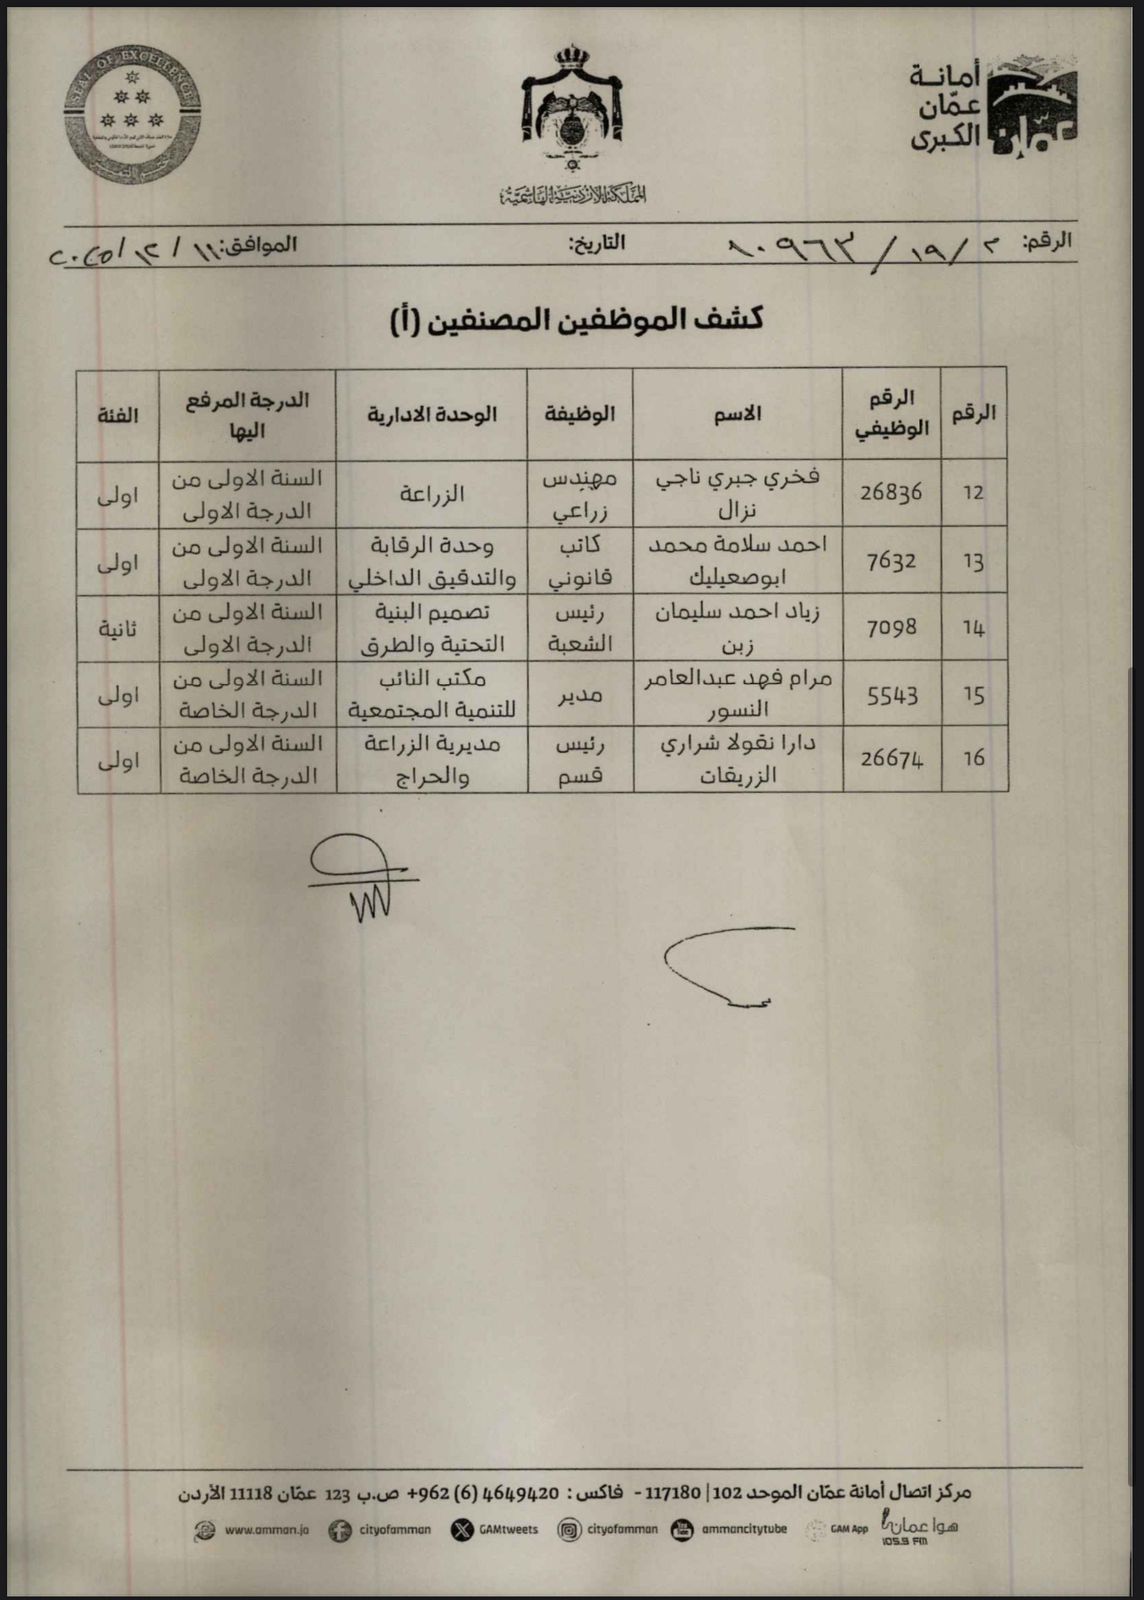 SEAL OF EXCELLENCE
المملكة الاردنية الهاشمية
أمانة
عمّان
الكبرى
عمّان
الرقم: ٢ / ١٩ / ١٠٩٦٣
التاريخ:
الموافق: ١١ / ١٢ / ٢٠٢٥
كشف الموظفين المصنفين (أ)
الرقم | الرقم الوظيفي | الاسم | الوظيفة | الوحدة الادارية | الدرجة المرفع اليها | الفئة
12 | 26836 | فخري جبري ناجي نزال | مهندس زراعي | الزراعة | السنة الاولى من الدرجة الاولى | اولى
13 | 7632 | احمد سلامة محمد ابوصعيليك | كاتب قانوني | وحدة الرقابة والتدقيق الداخلي | السنة الاولى من الدرجة الاولى | اولى
14 | 7098 | زياد احمد سليمان زبن | رئيس الشعبة | تصميم البنية التحتية والطرق | السنة الاولى من الدرجة الاولى | ثانية
15 | 5543 | مرام فهد عبدالعامر النسور | مدير | مكتب النائب للتنمية المجتمعية | السنة الاولى من الدرجة الخاصة | اولى
16 | 26674 | دارا نقولا شراري الزريقات | رئيس قسم | مديرية الزراعة والحراج | السنة الاولى من الدرجة الخاصة | اولى
مركز اتصال أمانة عمّان الموحد 102 | 117180 - فاكس : 4649420 (6) 962+ ص.ب 123 عمّان 11118 الأردن
www.amman.jo cityofamman GAMtweets cityofamman ammancitytube GAM App هوا عمان
105.9 FM